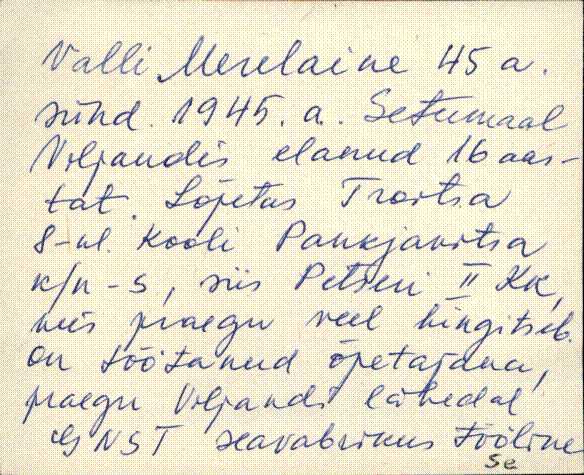 Valli Merelaine 45 a.
sünd. 1945. a. Setumaal
Viljandis elanud 16 aas-
tat. Lõpetas Troitsa
8-kl. Kooli Pankjavitsa
k/n-s, siis Petseri II KK,
mis praegu veel hingitseb.
On töötanud õpetajana,
praegu Viljandi lähedal
NST seavabrikus tööline
Se